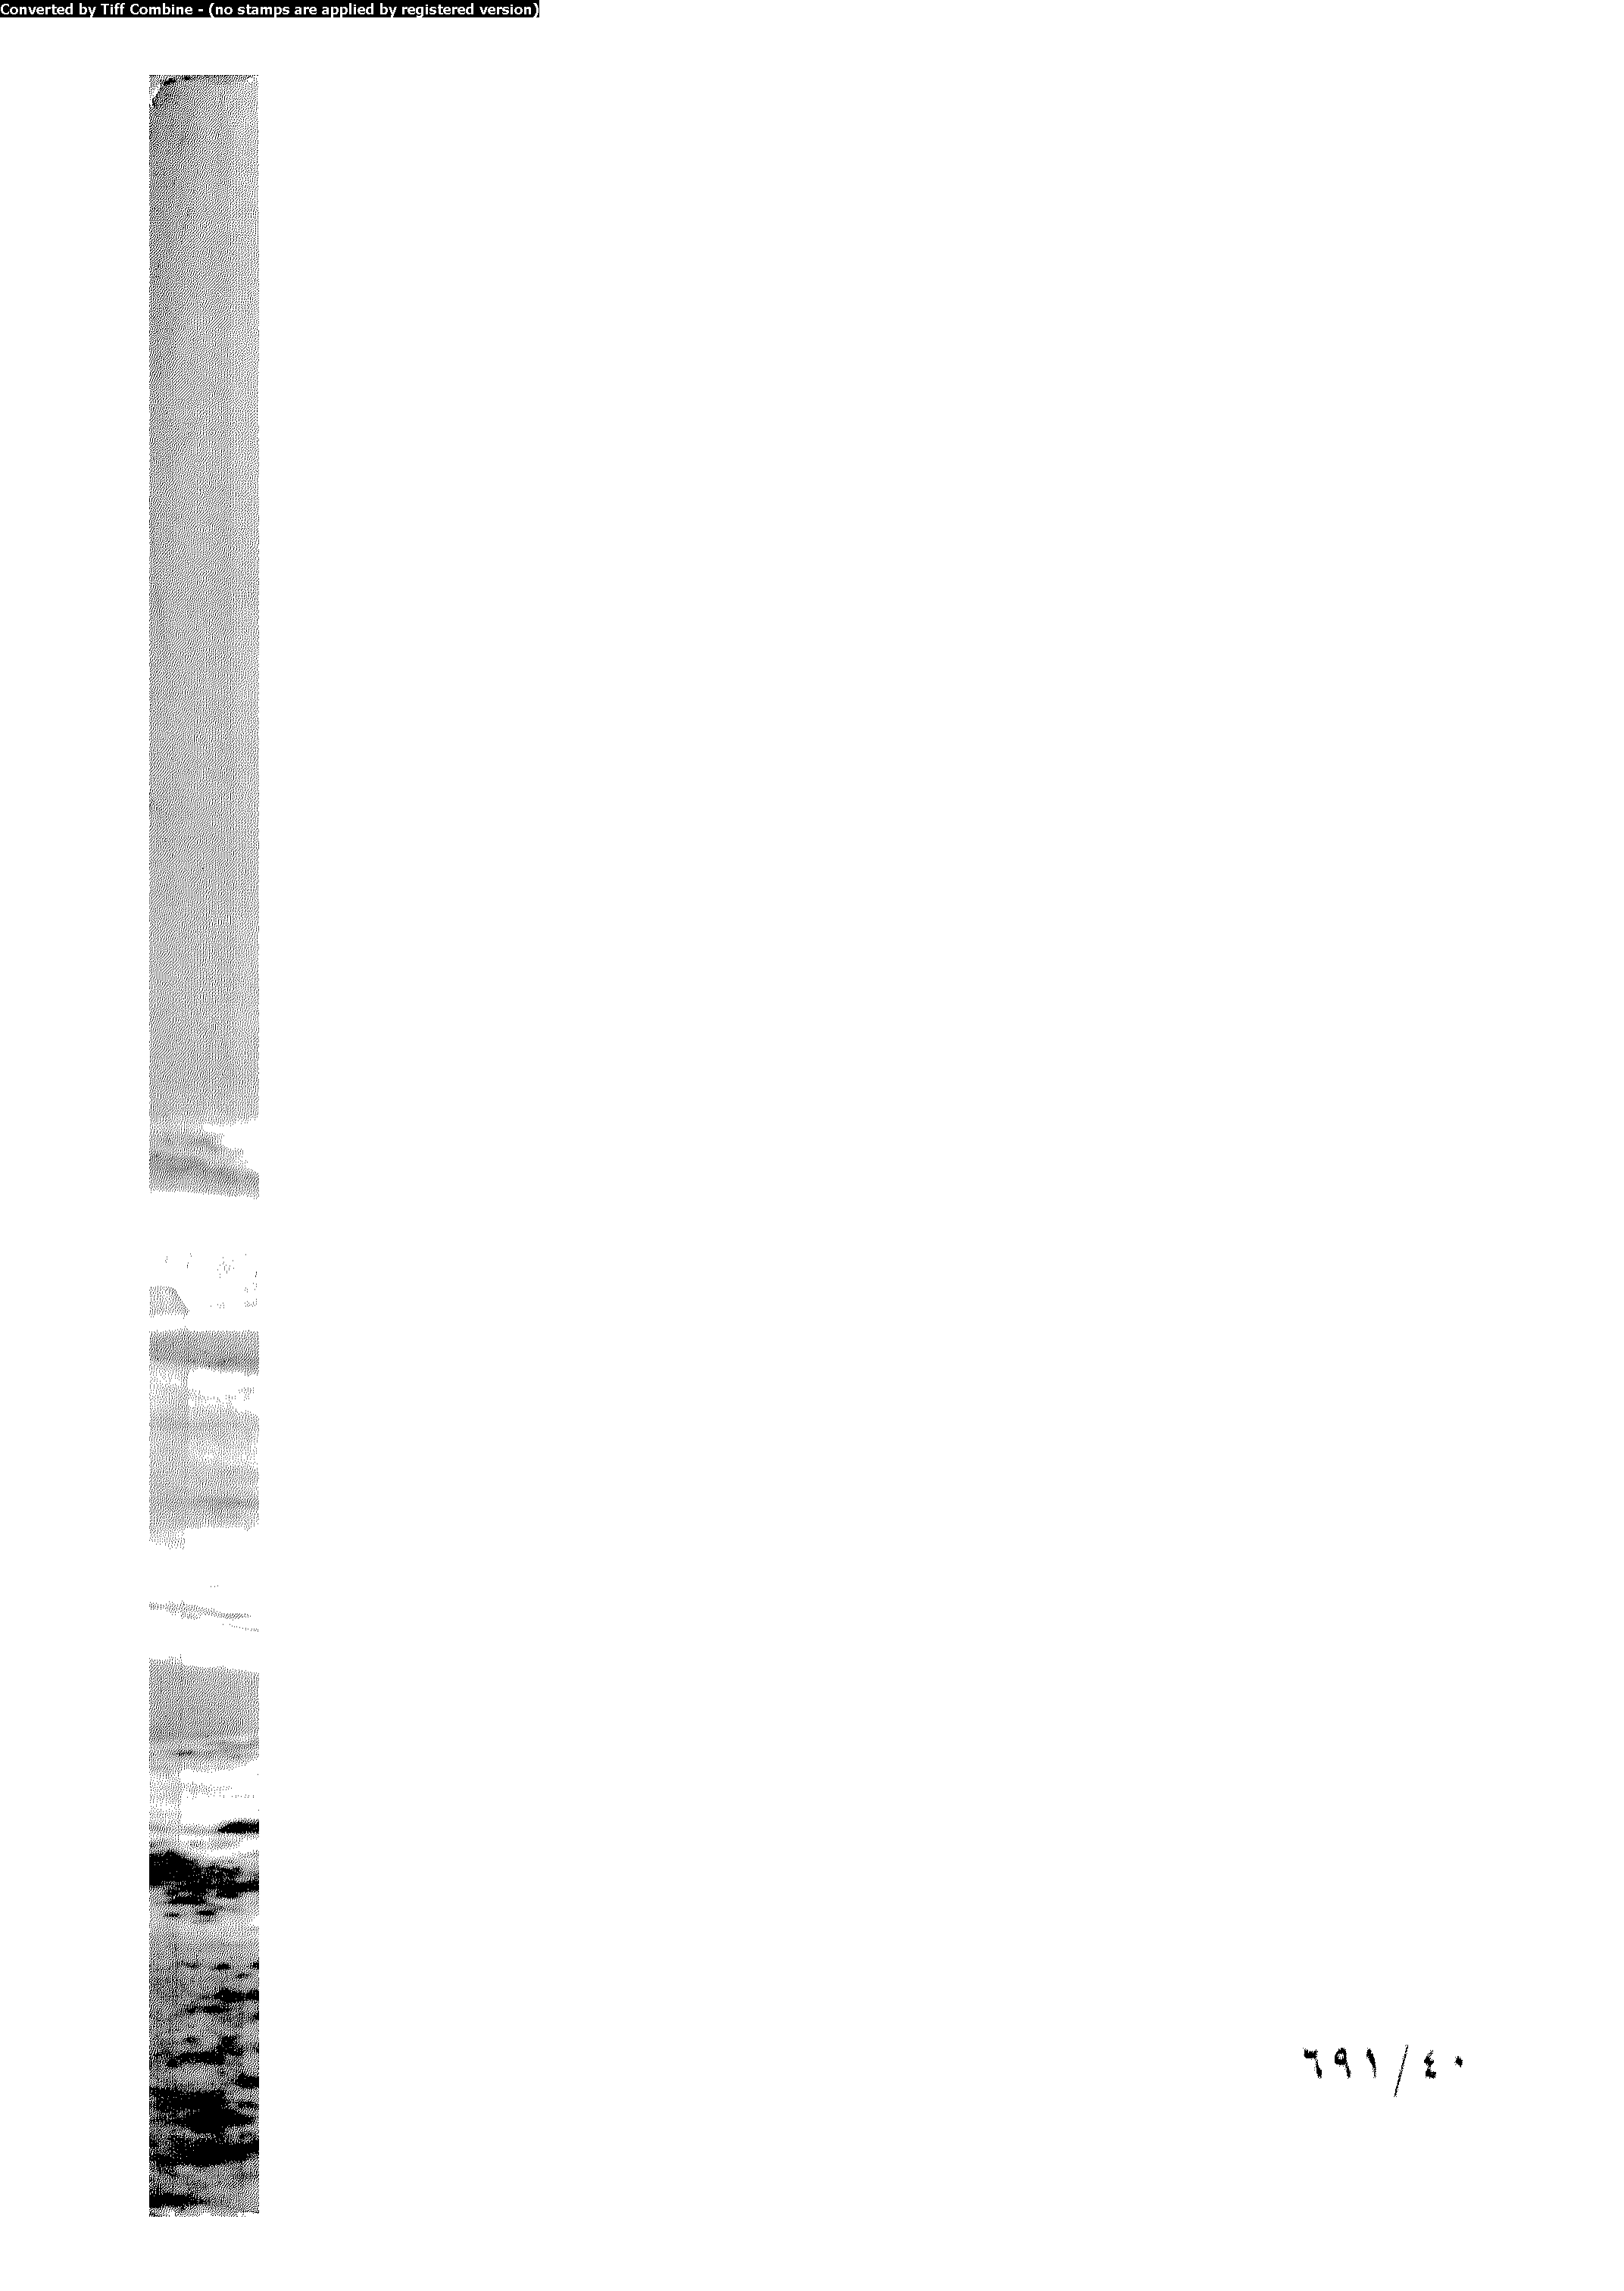 Converted by Tiff Combine - (no stamps are applied by registered version)
٦٩١/٤٠